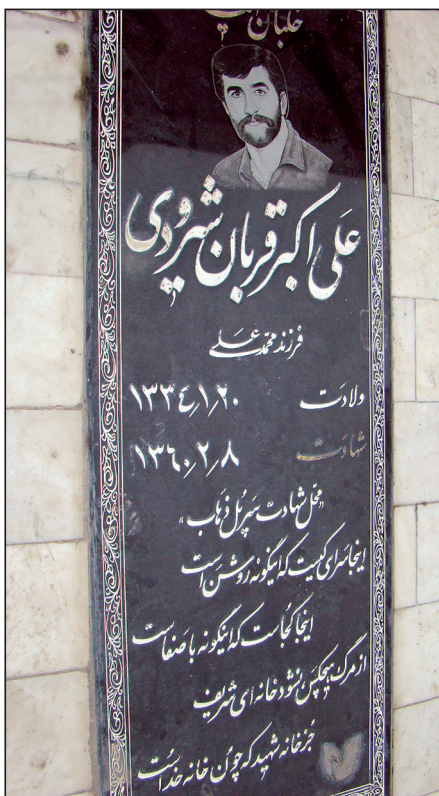 خلبان
علی اکبر قربان شیرودی
فرزند محمد علی
ولادت ۱۳۳٤٫۱٫۲۰
شهادت ۱۳٦۰٫۲٫۸
"محل شهادت سرپل ذهاب"
اینجا سرای کیست که اینگونه روشن است
اینجا کجاست که اینگونه با صفاست
از مرگ هیچکس نشود خانه ای شریف
جز خانه شهید که چون خانه خداست